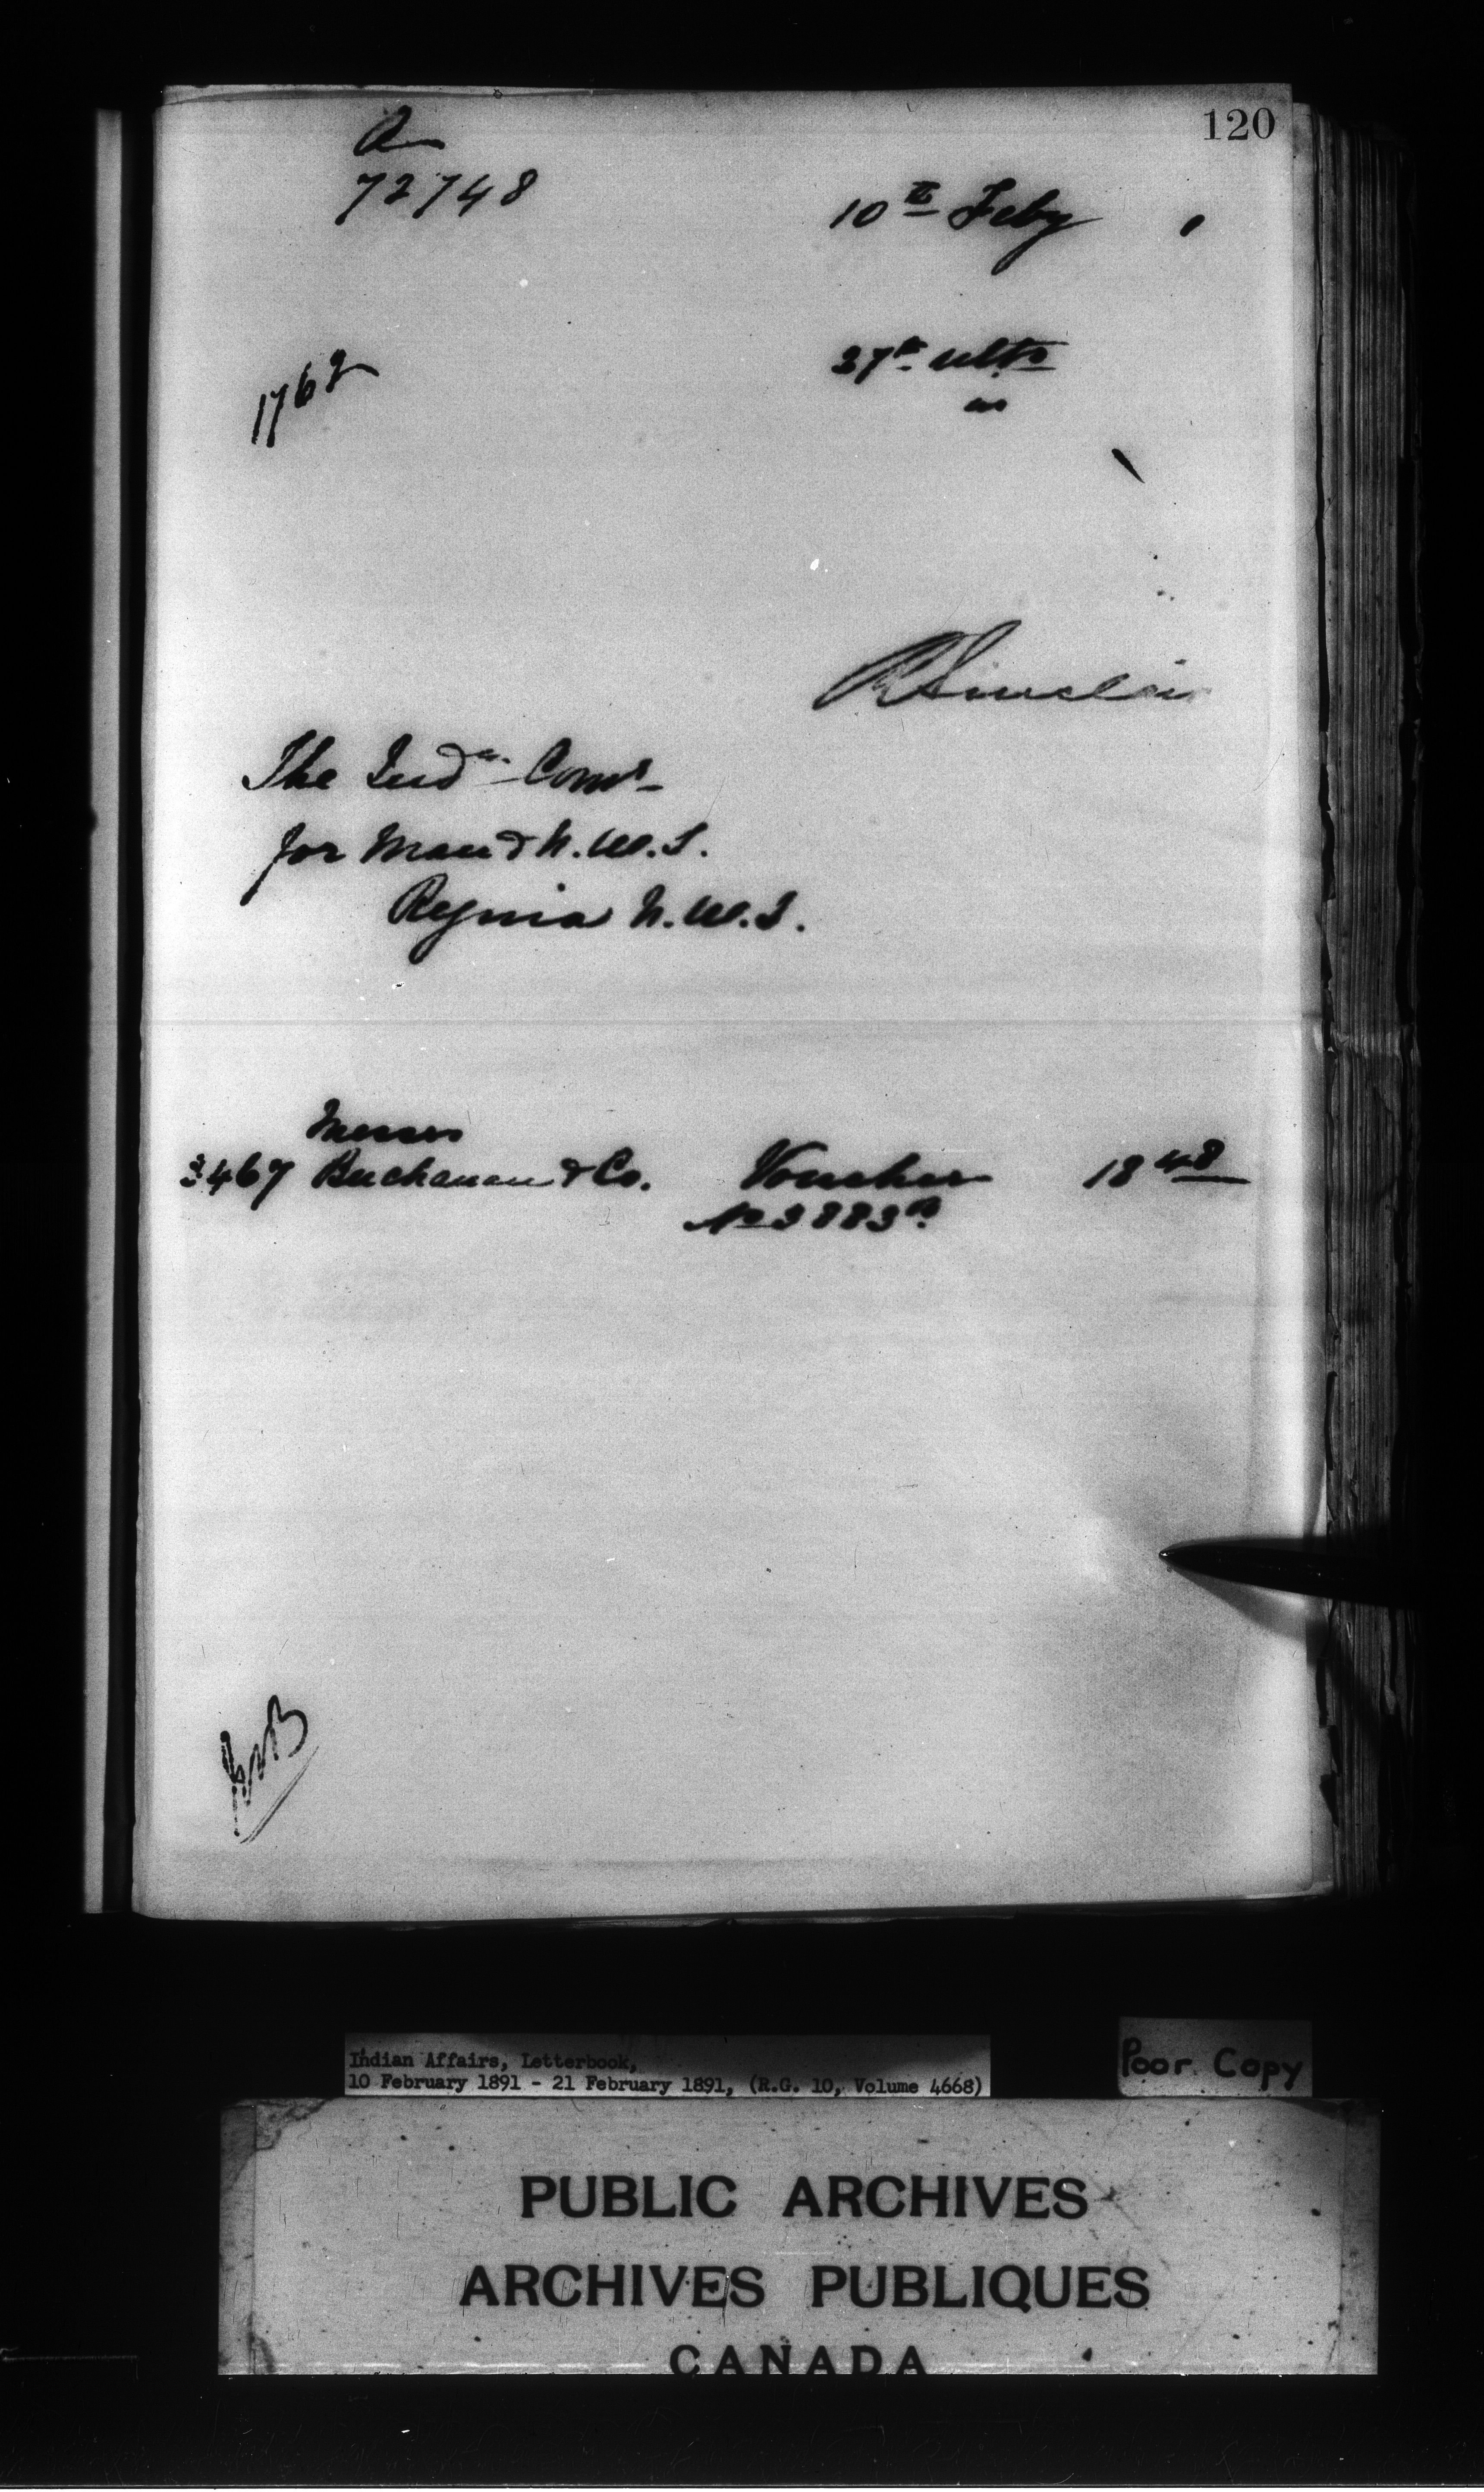 120
A
72748
10th Feby
1762
27th ulto
R Sinclair
The Indn. Comr
for Man & N.W.T.
Regina N.W.T.
Messrs
3467 Buchanan & Co. Voucher 18 48
No 3883
Indian Affairs, Letterbook,
10 February 1891 - 21 February 1891, (R.G. 10, Volume 4668)
Poor Copy
PUBLIC ARCHIVES
ARCHIVES PUBLIQUES
CANADA